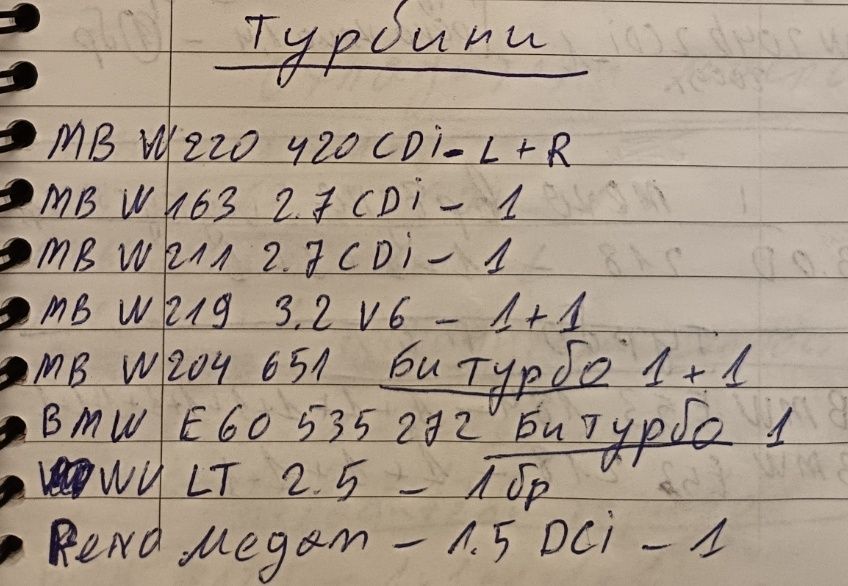 Турбини
MB W220 420 CDi - L + R
MB W163 2.7 CDi - 1
MB W211 2.7 CDi - 1
MB W219 3.2 V6 - 1+1
MB W204 651 Би турбо 1+1
BMW E60 535 272 Би турбо 1
WV LT 2.5 - 1бр
Рено Меган - 1.5 DCi - 1